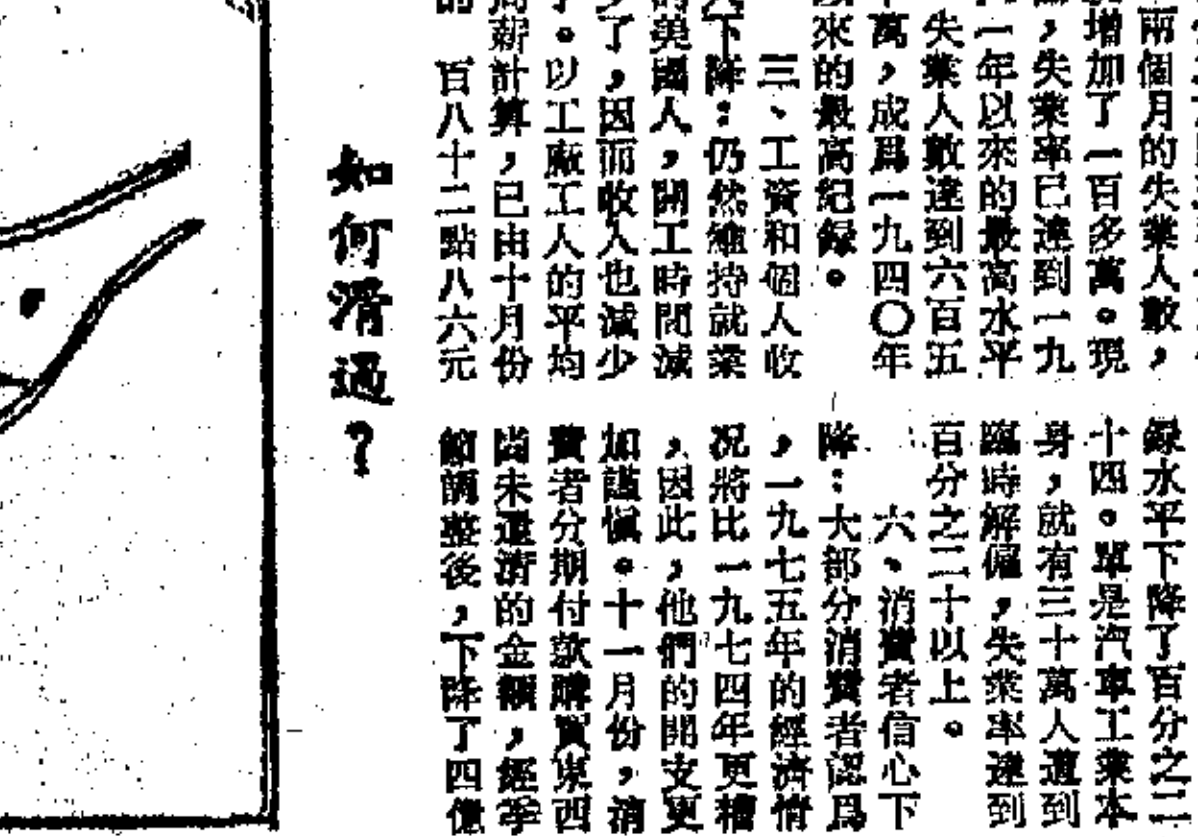 兩個月的失業人數，
增加了一百多萬。現
，失業率已達到一九
一年以來的最高水平
失業人數達到六百五
萬，成爲一九四〇年
來的最高紀錄。
三、工資和個人收
下降：仍然維持就業
的美國人，開工時間減
少了，因而收入也減少
。以工廠工人的平均
周薪計算，已由十月份
的一百八十二點八六元
錄水平下降了百分之二
十四。單是汽車工業本
身，就有三十萬人遭到
臨時解僱，失業率達到
百分之二十以上。
六、消費者信心下
降：大部分消費者認爲
，一九七五年的經濟情
況將比一九七四年更糟
，因此，他們的開支更
加謹慎。十一月份，消
費者分期付款購買東西
尚未還清的金額，經季
節調整後，下降了四億
如何渡過？